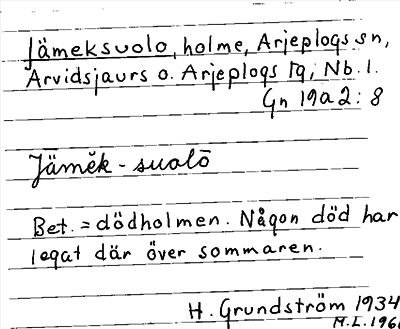 Jämeksuolo, holme, Arjeplogs sn,
Arvidsjaurs o. Arjeplogs tg, Nb. l.
Gn 19a2:8
Jämĕk-suolō
Bet. = dödholmen. Någon död har
legat där över sommaren.
H. Grundström 1934
M.L. 196